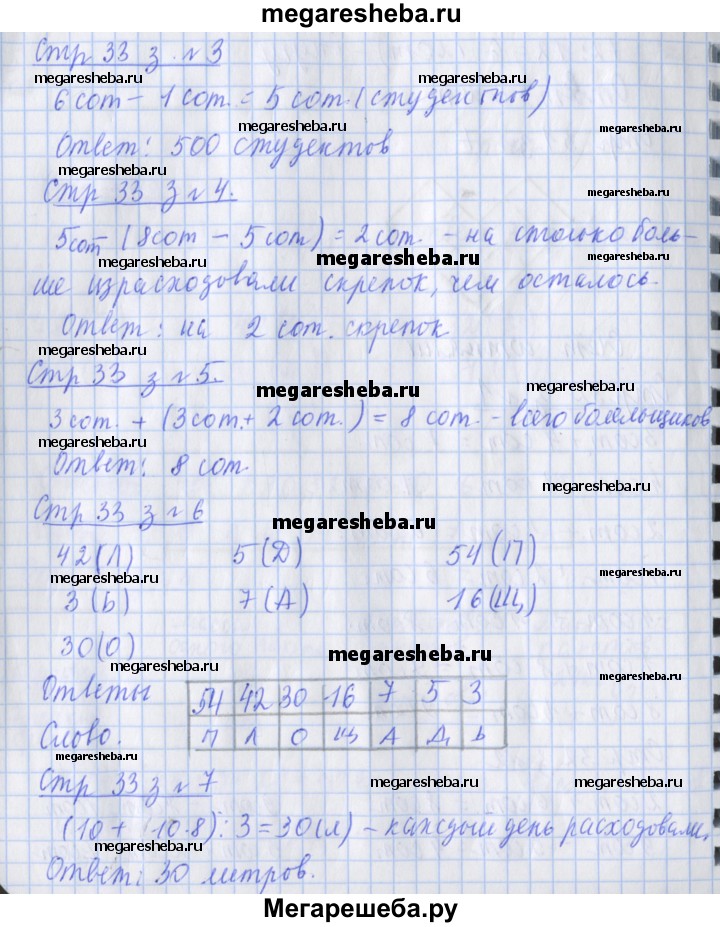 megaresheba.ru
Стр 33 з. №3
megaresheba.ru megaresheba.ru
6 сот - 1 сот. = 5 сот. (студентов)
megaresheba.ru megaresheba.ru
Ответ: 500 студентов
megaresheba.ru
Стр 33 з №4.
megaresheba.ru megaresheba.ru
5 сот - (8 сот - 5 сот) = 2 сот. - на столько боль-
megaresheba.ru megaresheba.ru megaresheba.ru
ше израсходовали скрепок, чем осталось.
Ответ: на 2 сот. скрепок
megaresheba.ru
Стр 33 з №5.
megaresheba.ru megaresheba.ru
3 сот. + (3 сот. + 2 сот.) = 8 сот. - всего болельщиков
megaresheba.ru
Ответ: 8 сот.
megaresheba.ru
Стр 33 з №6
megaresheba.ru
42 (Л) 5 (Д) 54 (П)
megaresheba.ru megaresheba.ru
3 (Ь) 7 (А) 16 (Щ)
30 (О)
megaresheba.ru megaresheba.ru megaresheba.ru
Ответы 54 42 30 16 7 5 3
Слово. П Л О Щ А Д Ь
megaresheba.ru
Стр 33 з №7
megaresheba.ru megaresheba.ru
(10 + (10·8) : 3 = 30 (л) - каждый день расходовали,
megaresheba.ru megaresheba.ru megaresheba.ru
Ответ: 30 литров.
Мегарешеба.ру